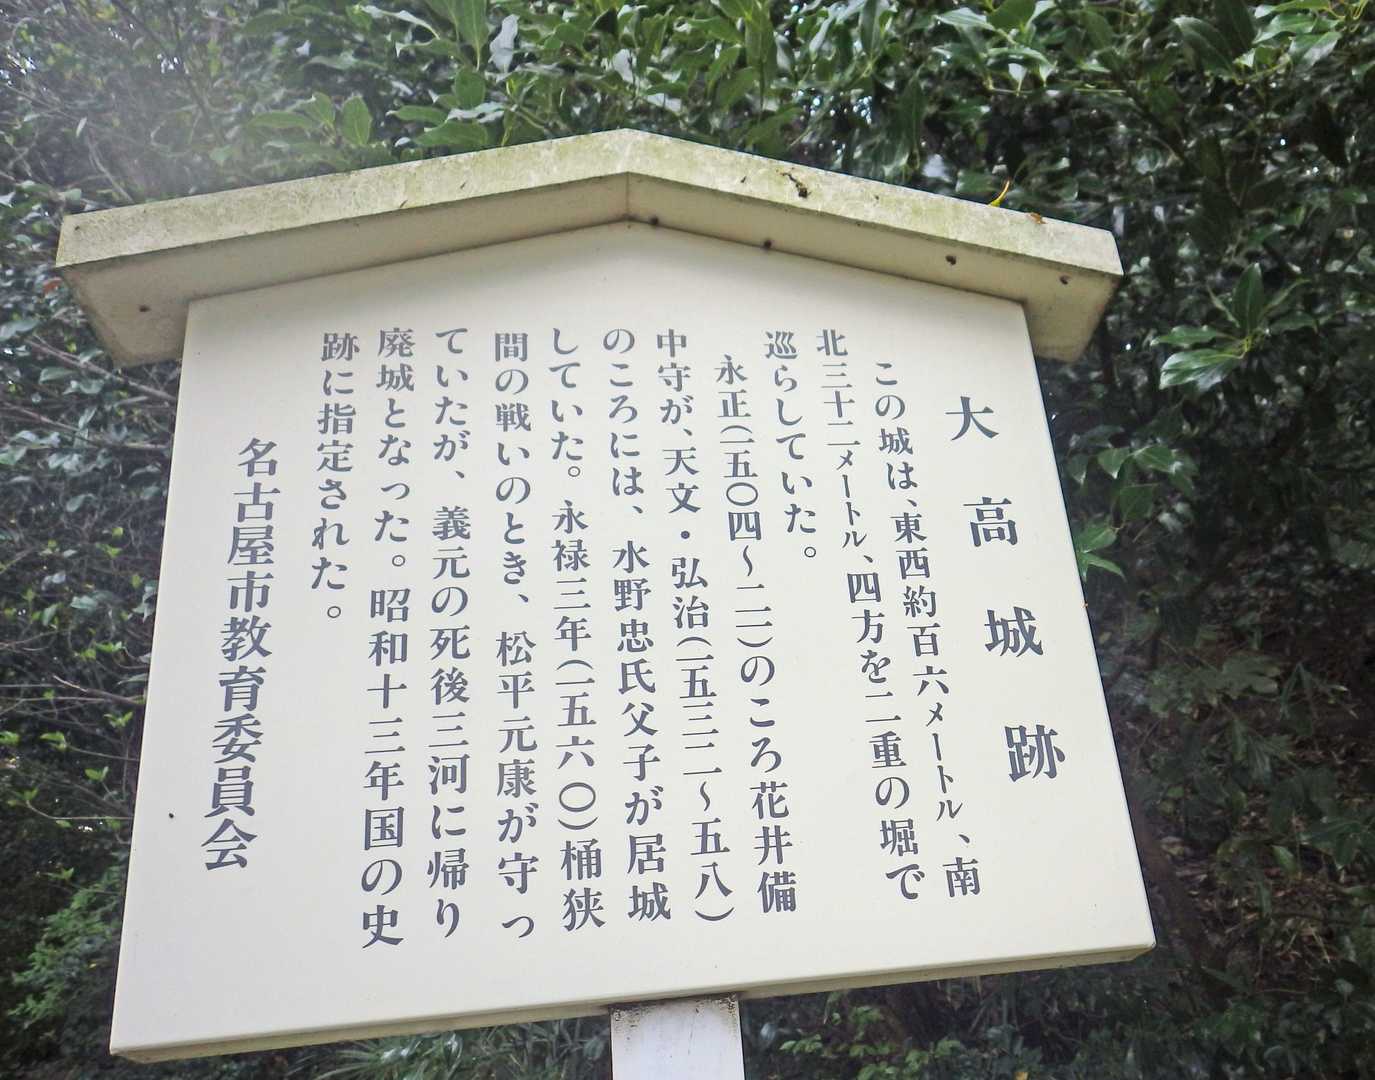 大高城跡
この城は、東西約百六メートル、南
北三十二メートル、四方を二重の堀で
巡らしていた。
永正(一五〇四～二一)のころ花井備
中守が、天文・弘治(一五三二～五八)
のころには、水野忠氏父子が居城
していた。永禄三年(一五六〇)桶狭
間の戦いのとき、松平元康が守っ
ていたが、義元の死後三河に帰り
廃城となった。昭和十三年国の史
跡に指定された。
名古屋市教育委員会